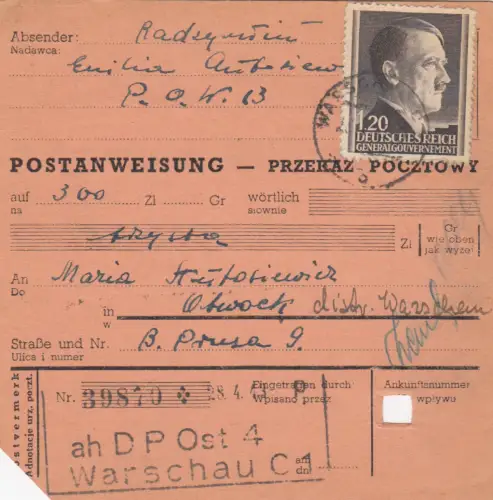 Absender: Radzymin
Nadawca:
Emilia
P. O. W. 13
WAR
1.20
DEUTSCHES REICH
GENERALGOUVERNEMENT
POSTANWEISUNG — PRZEKAZ POCZTOWY
auf 300 Zl Gr wörtlich
na słownie
trzysta Zl Gr wie oben
jak wyżej
An Maria Hutosiewicz
Do
in Otwock distr. Warschau
w
Straße und Nr. B. Prusa 9.
Ulica i numer
Postvermerk
Adnotacje urz. poczt.
Nr. 39870 28. 4. Eingetragen durch
Wpisano przez
P
Ankunftsnummer
wpływu
ah D P Ost 4
Warschau C 1
am
dn.